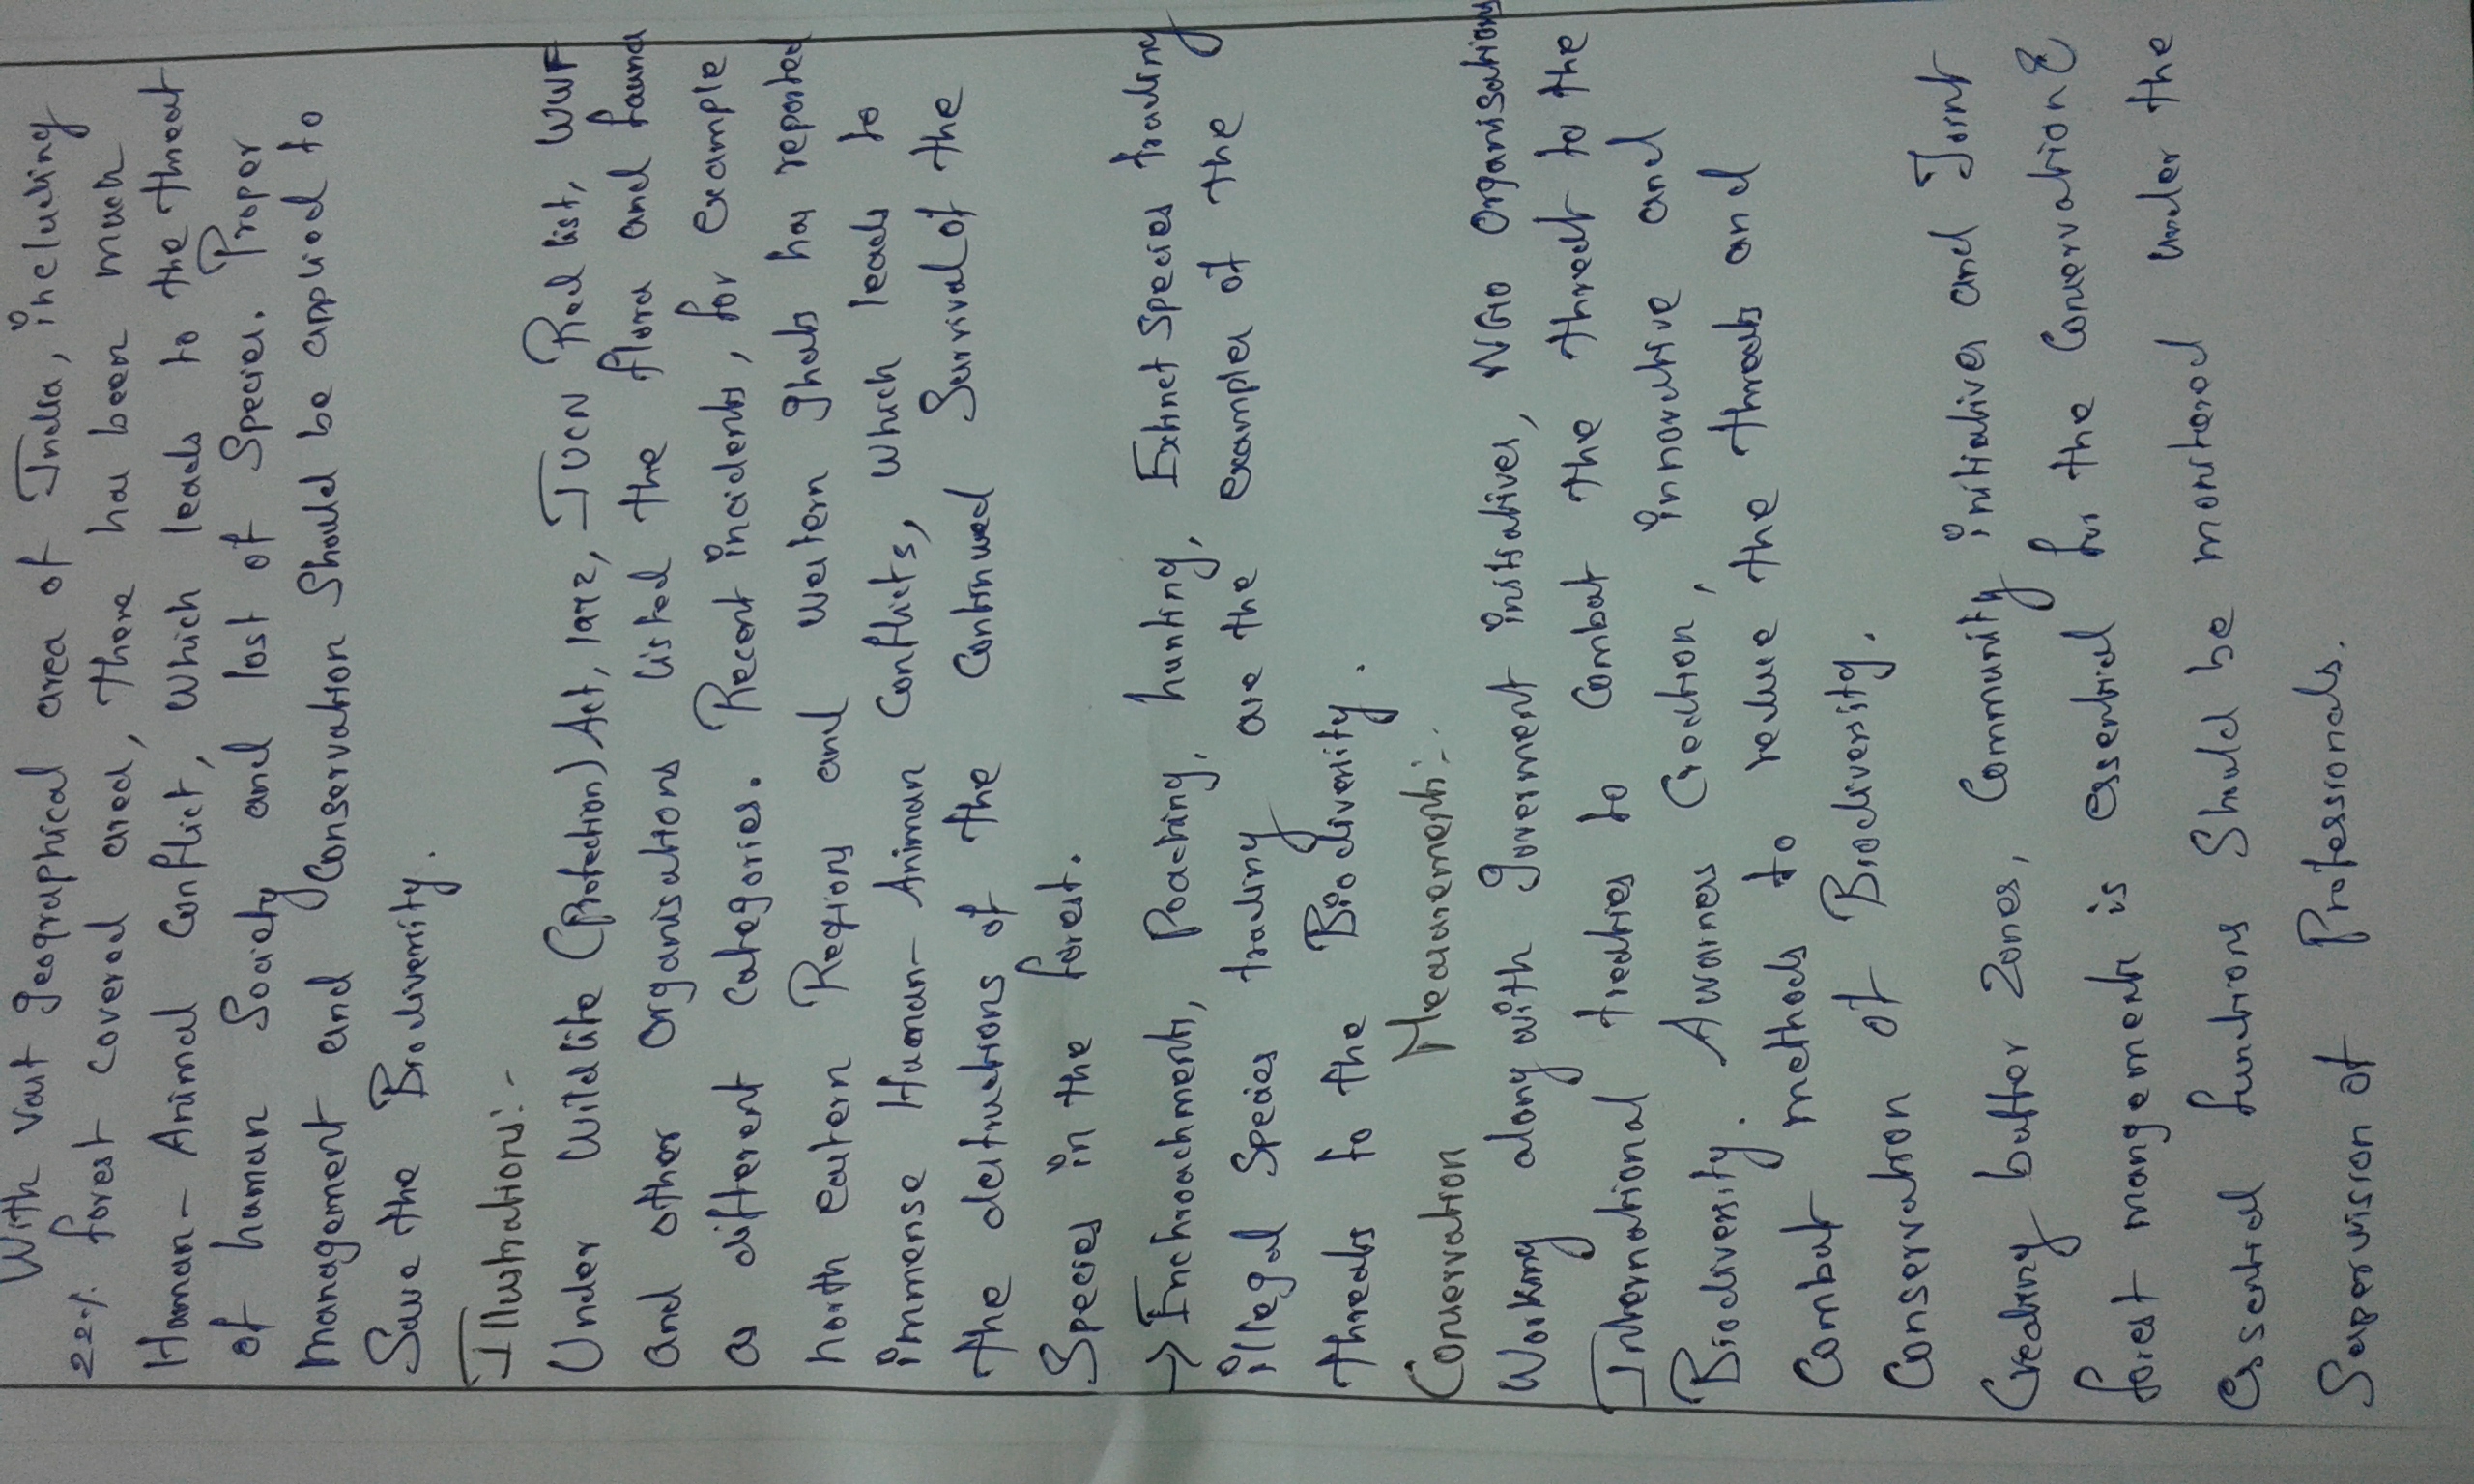 With vast geographical area of India, including
22% forest covered area, there has been much
Human-Animal Conflict, which leads to the threat
of human Society and lost of Species. Proper
management and Conservation Should be applied to
Save the Biodiversity.
Illustrations:-
Under Wildlife (Protection) Act, 1972, IUCN Red list, WWF
and other organisations listed the flora and fauna
as different categories. Recent incidents, for example
north eastern Regions and western ghats has reported
immense Human-Animan Conflicts, which leads to
the destructions of the Continued Survival of the
Species in the forest.
→ Enchroachments, Poaching, hunting, Extinct Species trading
illegal Species trading are the examples of the
threats to the Biodiversity.
Conservation Measurements:-
Working along with government initiatives, NGO organisations
International treaties to Combat the threat to the
Biodiversity. Awarness Creation, innovative and
Combat methods to reduce the threats and
Conservation of Biodiversity.
Creating buffer zones, Community initiatives and Joint
forest mangements is essential for the Conservation &
essential functions Should be monitered under the
Supervision of Professionals.